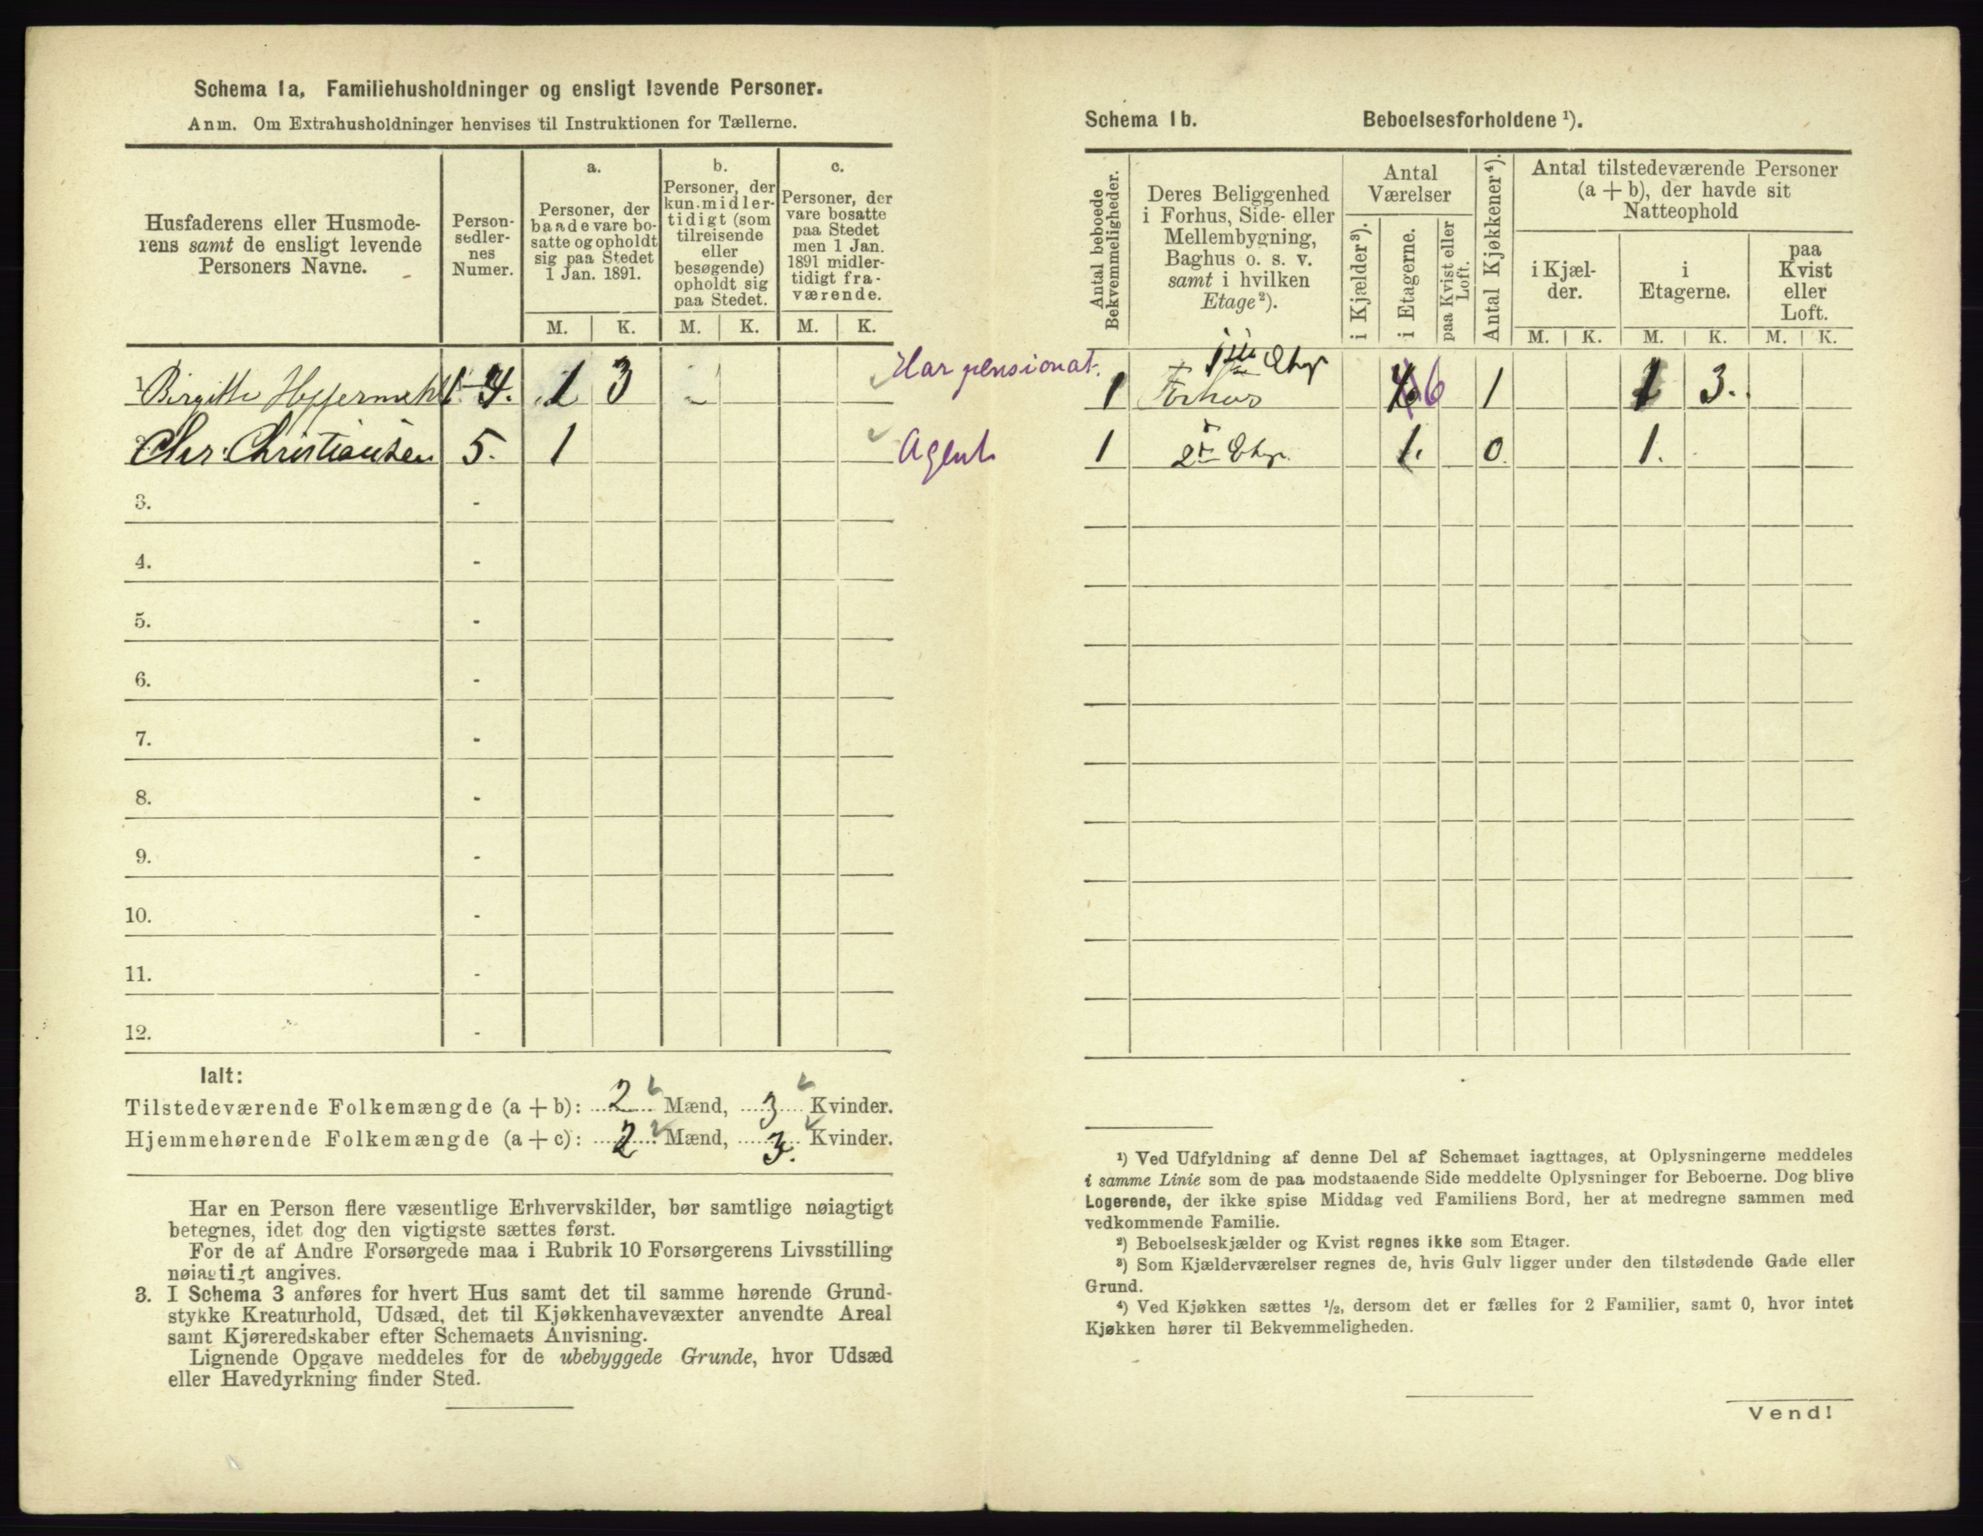 Schema 1a. Familiehusholdninger og ensligt levende Personer.
Anm. Om Extrahusholdninger henvises til Instruktionen for Tællerne.
Husfaderens eller Husmode-
rens samt de ensligt levende
Personers Navne.
Person-
sedler-
nes
Numer.
a.
Personer, der
baade vare bo-
satte og opholdt
sig paa Stedet
1 Jan. 1891.
b.
Personer, der
kun midler-
tidigt (som
tilreisende
eller
besøgende)
opholdt sig
paa Stedet.
c.
Personer, der
vare bosatte
paa Stedet
men 1 Jan.
1891 midler-
tidigt fra-
værende.
M. K. M. K. M. K.
1. Birgitte 1-4. 1 3 Har pensionat.
Chr. Christiansen 5. 1 Agent
3. -
4. -
5. -
6. -
7. -
8. -
9. -
10. -
11. -
12. -
Ialt:
Tilstedeværende Folkemængde (a + b): 2 Mænd, 3 Kvinder.
Hjemmehørende Folkemængde (a + c): 2 Mænd, 3. Kvinder.
Har en Person flere væsentlige Erhvervskilder, bør samtlige nøiagtigt
betegnes, idet dog den vigtigste sættes først.
For de af Andre Forsørgede maa i Rubrik 10 Forsørgerens Livsstilling
nøiagtigt angives.
3. I Schema 3 anføres for hvert Hus samt det til samme hørende Grund-
stykke Kreaturhold, Udsæd, det til Kjøkkenhavevæxter anvendte Areal
samt Kjøreredskaber efter Schemaets Anvisning.
Lignende Opgave meddeles for de ubebyggede Grunde, hvor Udsæd
eller Havedyrkning finder Sted.
Schema 1b. Beboelsesforholdene ¹).
Antal beboede
Bekvemmeligheder.
Deres Beliggenhed
i Forhus, Side- eller
Mellembygning,
Baghus o. s. v.
samt i hvilken
Etage ²).
Antal
Værelser
i Kjælder ³).
i Etagerne.
paa Kvist eller
Loft.
Antal Kjøkkener ⁴).
Antal tilstedeværende Personer
(a + b), der havde sit
Natteophold
i Kjæl-
der.
i
Etagerne.
paa
Kvist
eller
Loft.
M. K. M. K. M. K.
1 Forhus 6 1 1 3.
1 1. 0. 1.
¹) Ved Udfyldning af denne Del af Schemaet iagttages, at Oplysningerne meddeles
i samme Linie som de paa modstaaende Side meddelte Oplysninger for Beboerne. Dog blive
Logerende, der ikke spise Middag ved Familiens Bord, her at medregne sammen med
vedkommende Familie.
²) Beboelseskjælder og Kvist regnes ikke som Etager.
³) Som Kjælderværelser regnes de, hvis Gulv ligger under den tilstødende Gade eller
Grund.
⁴) Ved Kjøkken sættes ½, dersom det er fælles for 2 Familier, samt 0, hvor intet
Kjøkken hører til Bekvemmeligheden.
Vend!